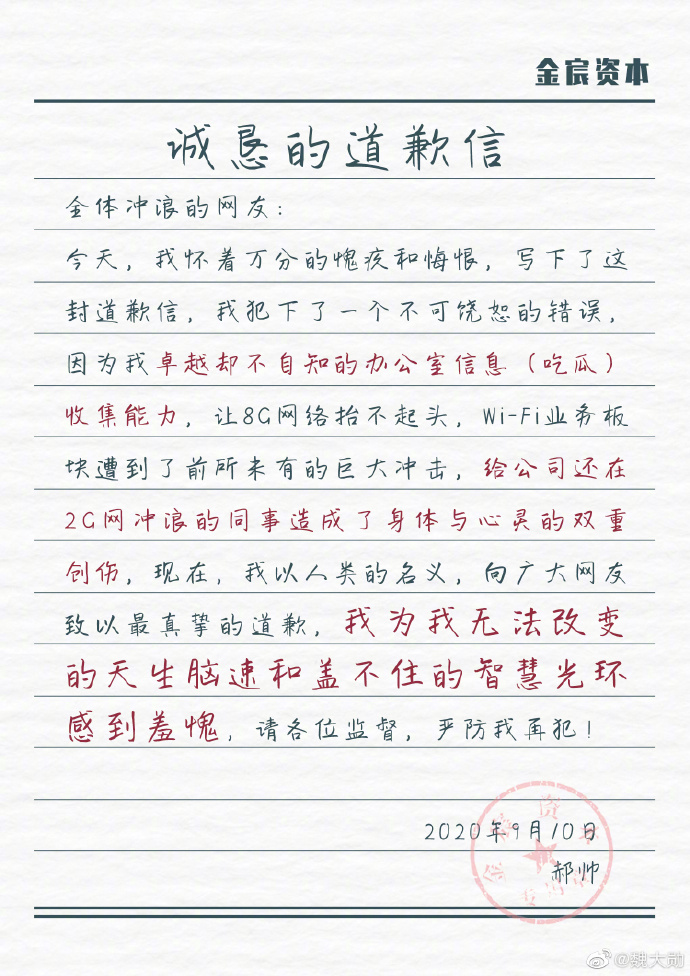 金宸资本
诚恳的道歉信
全体冲浪的网友：
今天，我怀着万分的愧疚和悔恨，写下了这
封道歉信，我犯下了一个不可饶恕的错误，
因为我卓越却不自知的办公室信息（吃瓜）
收集能力，让8G网络抬不起头，Wi-Fi业务板
块遭到了前所未有的巨大冲击，给公司还在
2G网冲浪的同事造成了身体与心灵的双重
创伤，现在，我以人类的名义，向广大网友
致以最真挚的道歉，我为我无法改变
的天生脑速和盖不住的智慧光环
感到羞愧，请各位监督，严防我再犯！
2020年9月10日
郝帅
金宸资本
@魏大勋